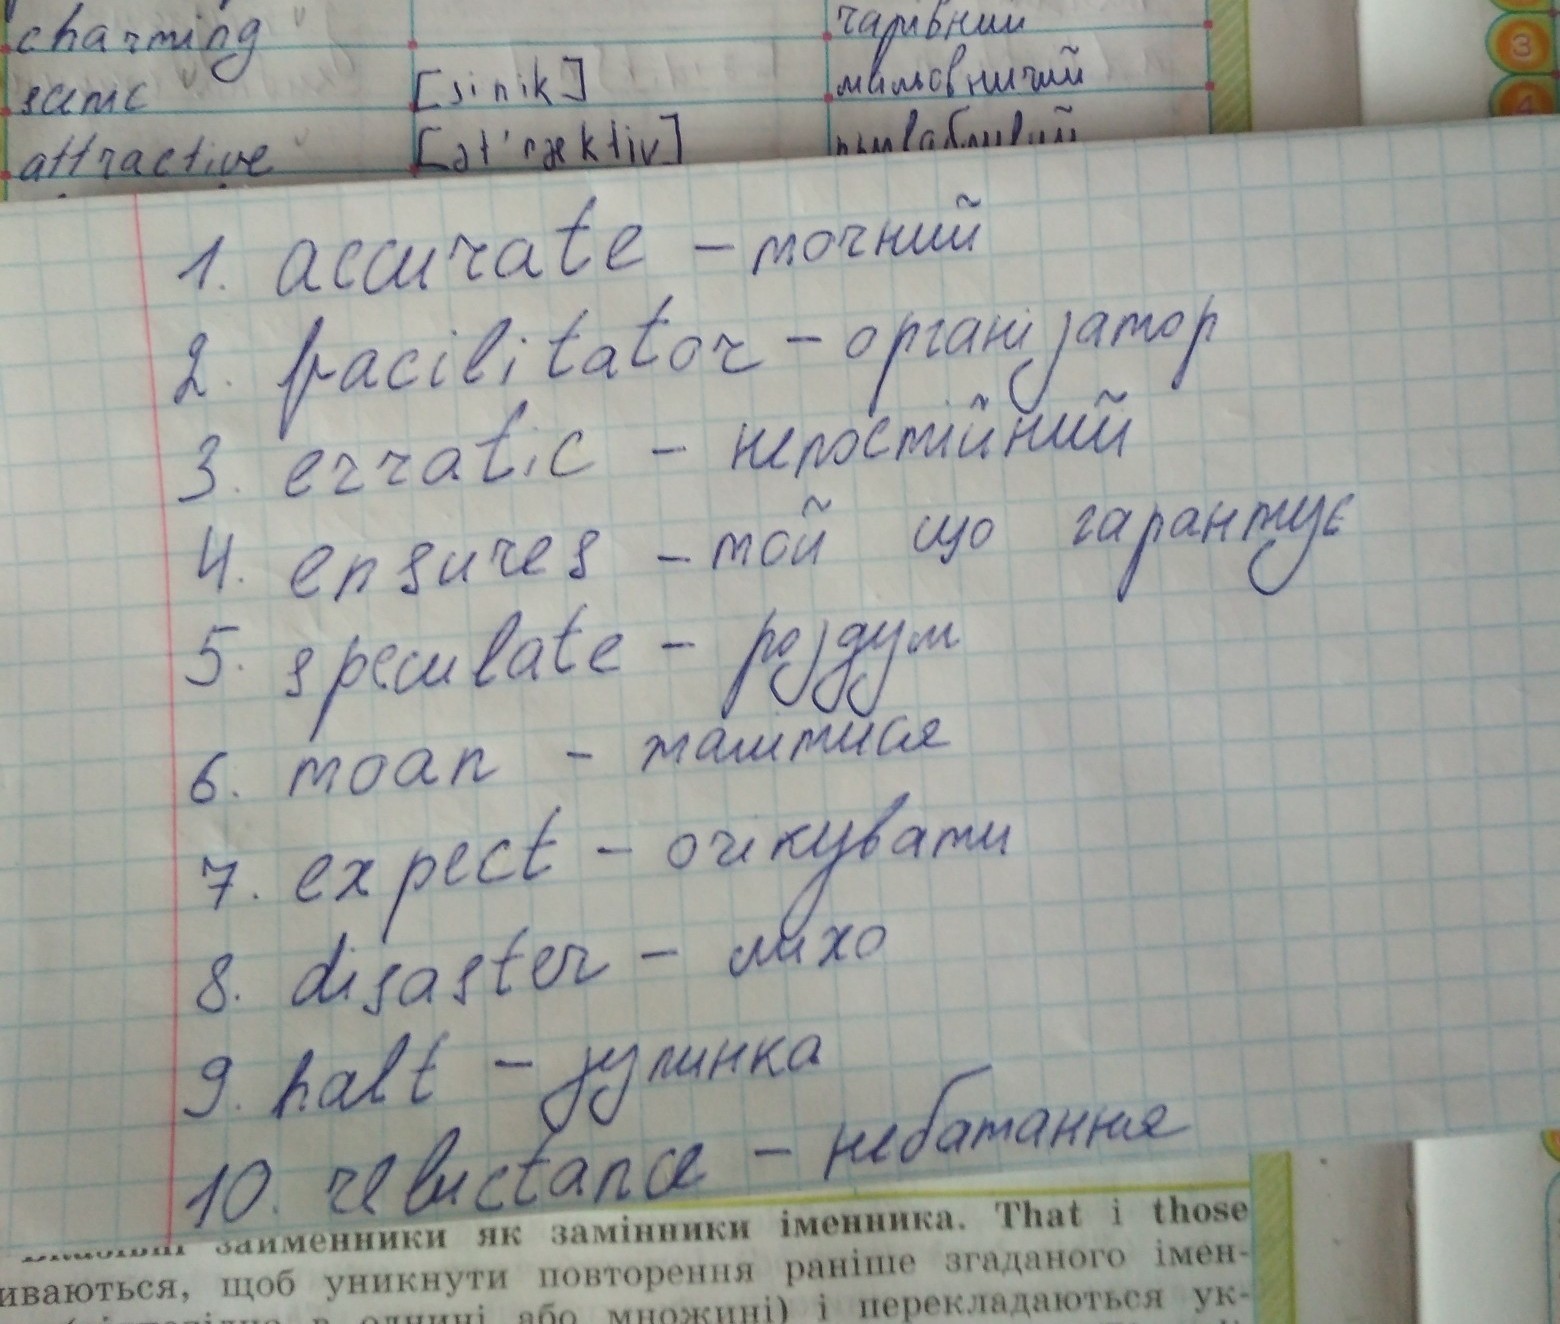 charming чарівний
scenic [sinik] мальовничий
attractive [ət'ræktiv] привабливий
3
4
1. accurate – точний
2. facilitator – організатор
3. erratic – непостійний
4. ensures – той що гарантує
5. speculate – роздум
6. moan –
7. expect – очікувати
8. disaster – лихо
9. halt – зупинка
10. reluctance – небажання
займенники як замінники іменника. That і those
иваються, щоб уникнути повторення раніше згаданого імен-
в однині або множині) і перекладаються ук-